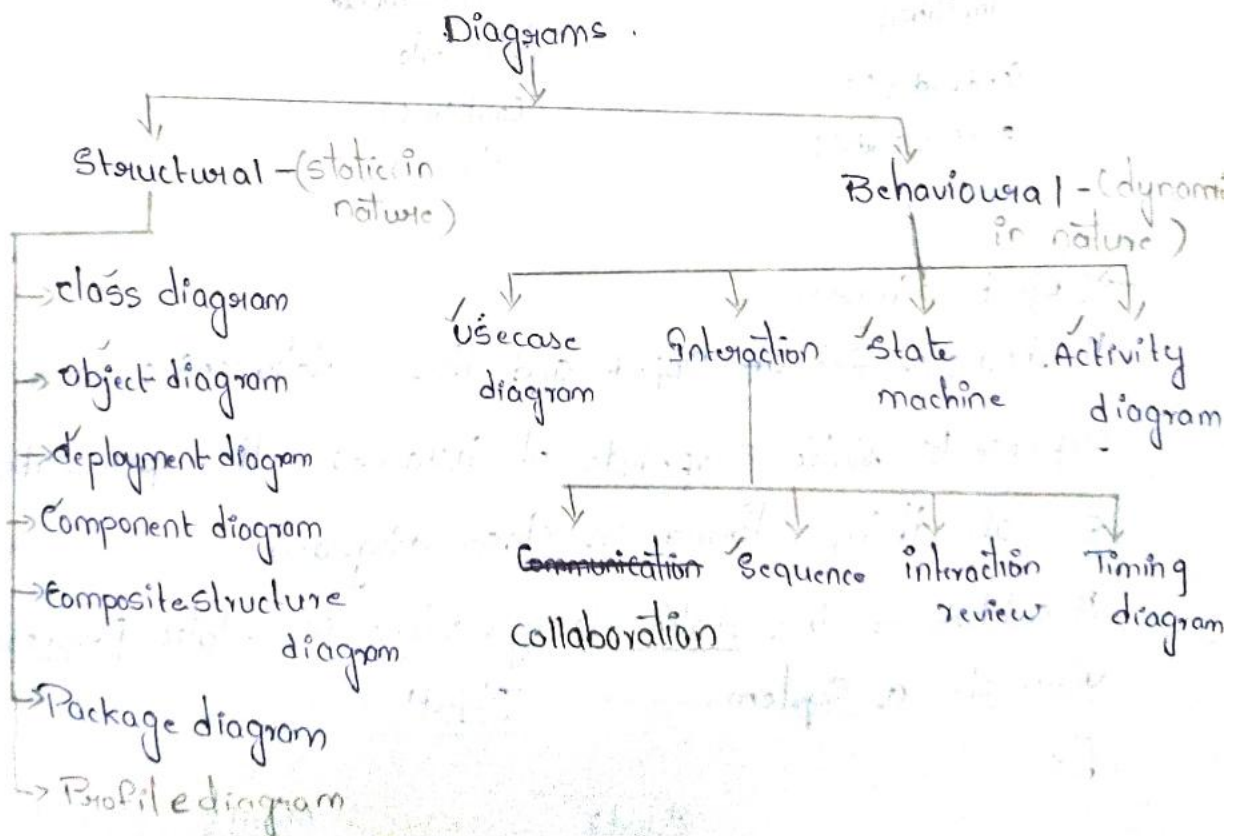 Diagrams.
Structural - (static in
nature)
class diagram
object diagram
deployment diagram
Component diagram
Composite structure
diagram
Package diagram
Profile diagram
Behavioural - (dynami
in nature)
Usecase
diagram
Interaction
State
machine
Activity
diagram
Communication
collaboration
Sequence
interaction
review
Timing
diagram